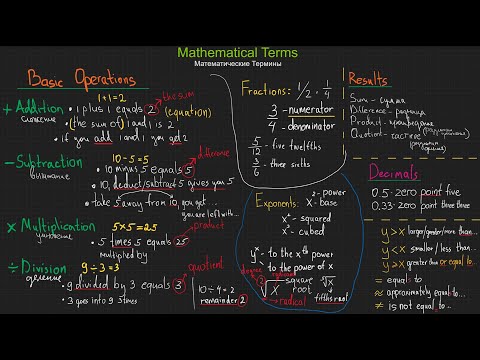 Mathematical Terms
Математические Термины
Basic Operations
1+1=2
the sum
+ Addition
сложение
• 1 plus 1 equals 2 (equation)
• (the sum of) 1 and 1 is 2
• if you add 1 and 1 you get 2
− Subtraction
вычитание
10-5=5
difference
• 10 minus 5 equals 5
• 10, deduct/subtract 5 gives you 5
• take 5 away from 10, you get...
you are left with...
× Multiplication
умножение
5×5=25
product
• 5 times 5 equals 25
multiplied by
÷ Division
деление
9÷3=3
quotient
• 9 divided by 3 equals 3
• 3 goes into 9 3 times
10÷4=2
remainder 2
Fractions: 1/2 · 1/4
3 - numerator
4 - denominator
5/10 - five twelfths
3/6 - three sixths
Exponents:
2 - power
X - base
x² - squared
x³ - cubed
yˣ - to the xth power
- to the power of x
degree
square root
radical
fifth root
Results
Sum - сумма
Difference - разница
Product - произведение
Quotient - частное
Decimals
0.5 - zero point five
0.33 - zero point three three
y > x larger/greater/more than...
y < x smaller / less than...
y ≥ x greater than or equal to...
= equals to
≈ approximately equal to...
≠ is not equal to...